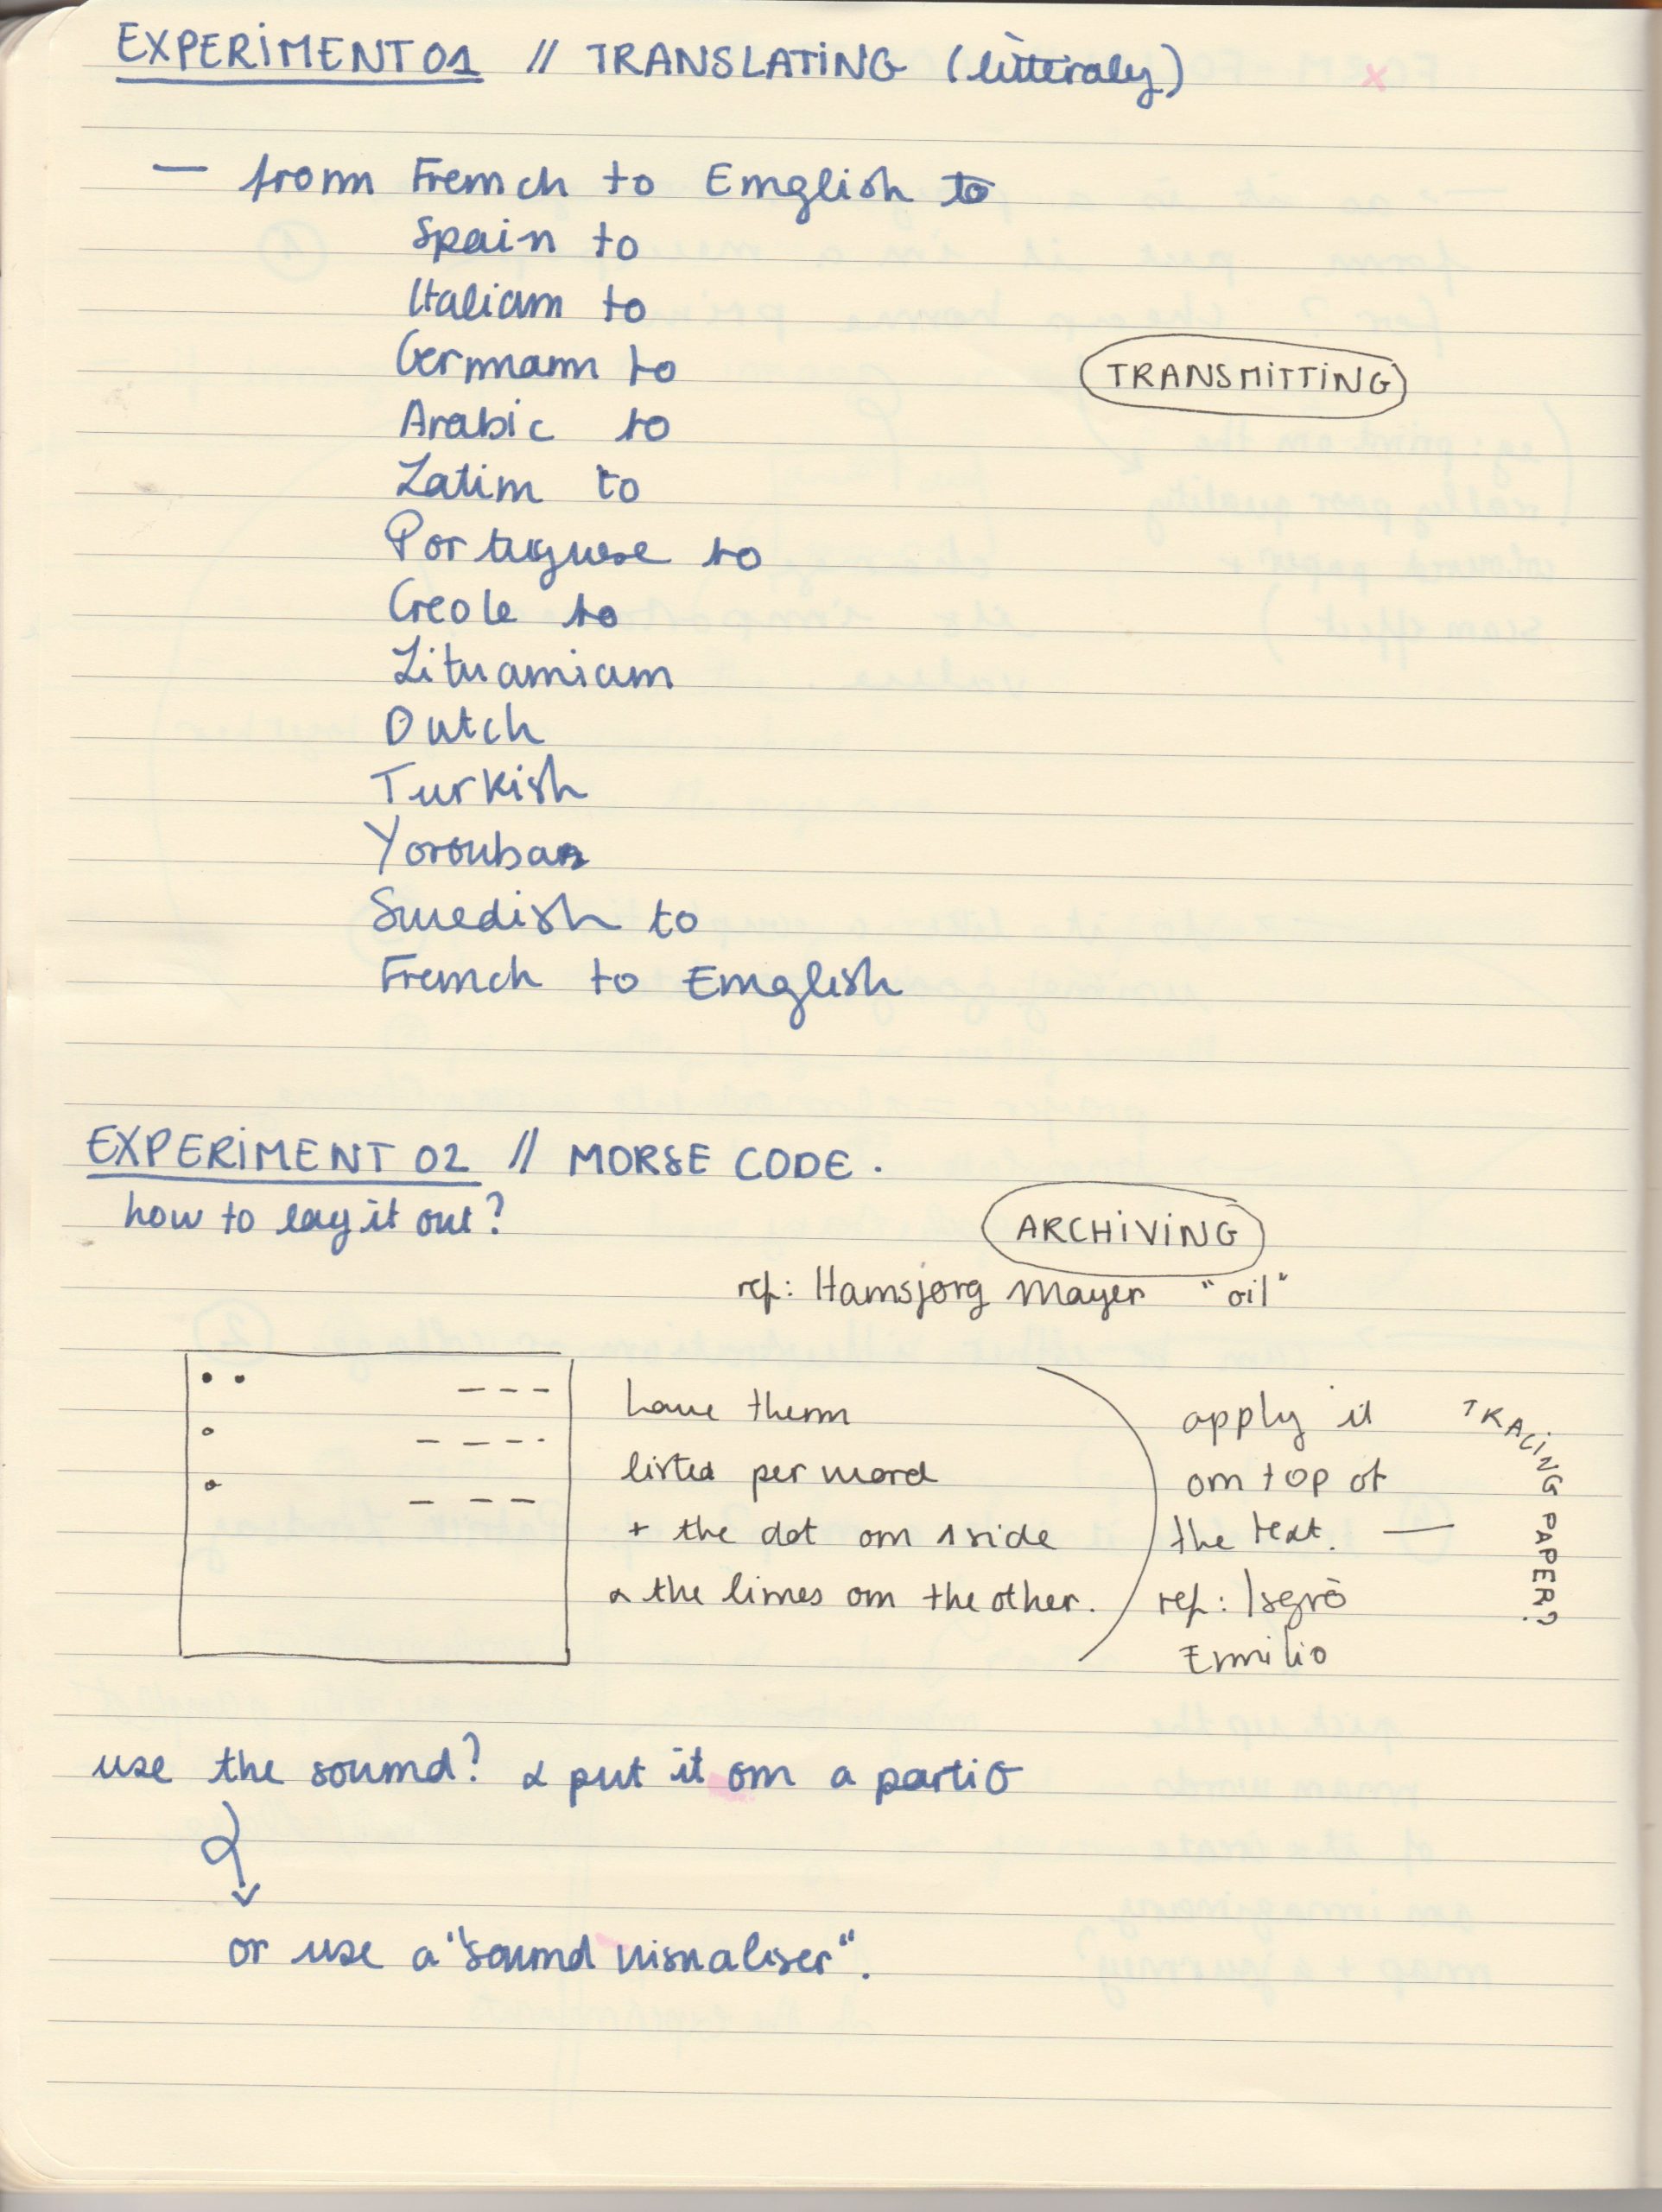 EXPERIMENT 01 // TRANSLATING (litteraly)
— from French to English to
Spain to
Italian to
German to
TRANSMITTING
Arabic to
Latin to
Portuguese to
Creole to
Lituanian
Dutch
Turkish
Yorouban
Swedish to
French to English
EXPERIMENT 02 // MORSE CODE.
how to lay it out?
ARCHIVING
ref: Hansjorg Mayer "oil"
have them
listed per word
+ the dot on 1 side
& the lines on the other.
apply it
on top of
the text. —
ref: Isgrò
Emilio
TRACING PAPER?
use the sound? & put it on a partio
or use a "sound visualiser".